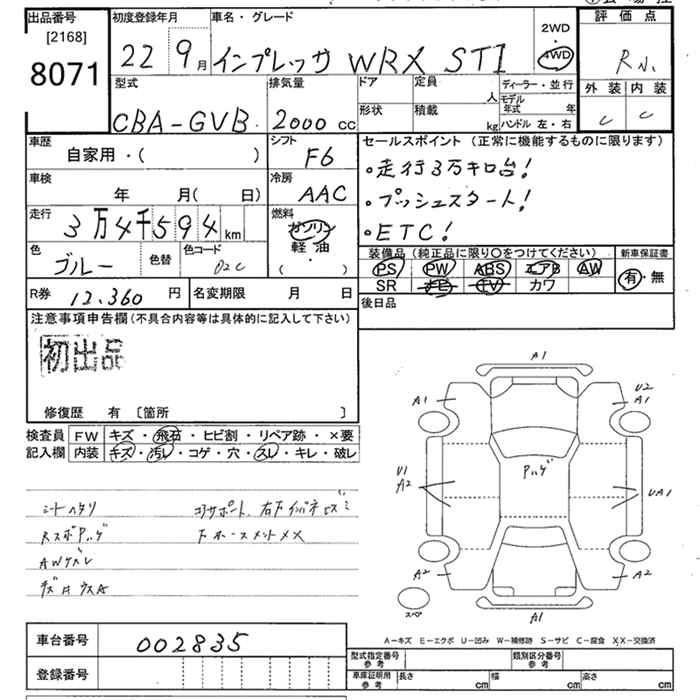 出品番号
[2168]
8071
初度登録年月
22 9月
車名・グレード
インプレッサ WRX STI
2WD
・
4WD
評価点
R
外装 内装
C C
型式
CBA-GVB
排気量
2000 cc
ドア
形状
定員
人
積載
kg
ディーラー・並行
モデル年式 年
ハンドル 左・右
車歴
自家用・( )
シフト
F6
車検
年 月( 日)
冷房
AAC
走行
3万4千594 km
燃料
ガソリン
軽・油
( )
色
ブルー
色替
色コード
02C
セールスポイント (正常に機能するものに限ります)
・走行3万キロ台!
・プッシュスタート!
・ETC!
装備品 (純正品に限り○をつけてください)
新車保証書
PS PW ABS エアB AW
SR ナビ TV カワ
有・無
R券 12,360 円
名変期限 月 日
後日品
注意事項申告欄 (不具合内容等は具体的に記入して下さい)
初出品
修復歴 有 〔箇所 〕
検査員
記入欄
FW キズ・飛石・ヒビ割・リペア跡・×要
内装 キズ・汚レ・コゲ・穴・スレ・キレ・破レ
シートヘタリ
RスポPハゲ
AWケズレ
コアサポート、右下
A1
A1
U2
A1
U1
A2
Pハゲ
UA1
A2
A2
スペ
A1
A-キズ E-エクボ U-凹み W-補修跡 S-サビ C-腐食 XX-交換済
車台番号 002835
登録番号
型式指定番号
参考
類別区分番号
参考
車庫証明用
参考
長さ cm 幅 cm 高さ cm